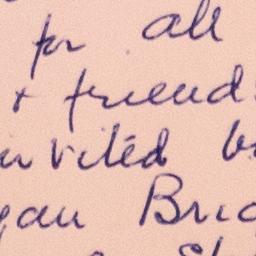 for all
+ friend
invited b
gan Bric